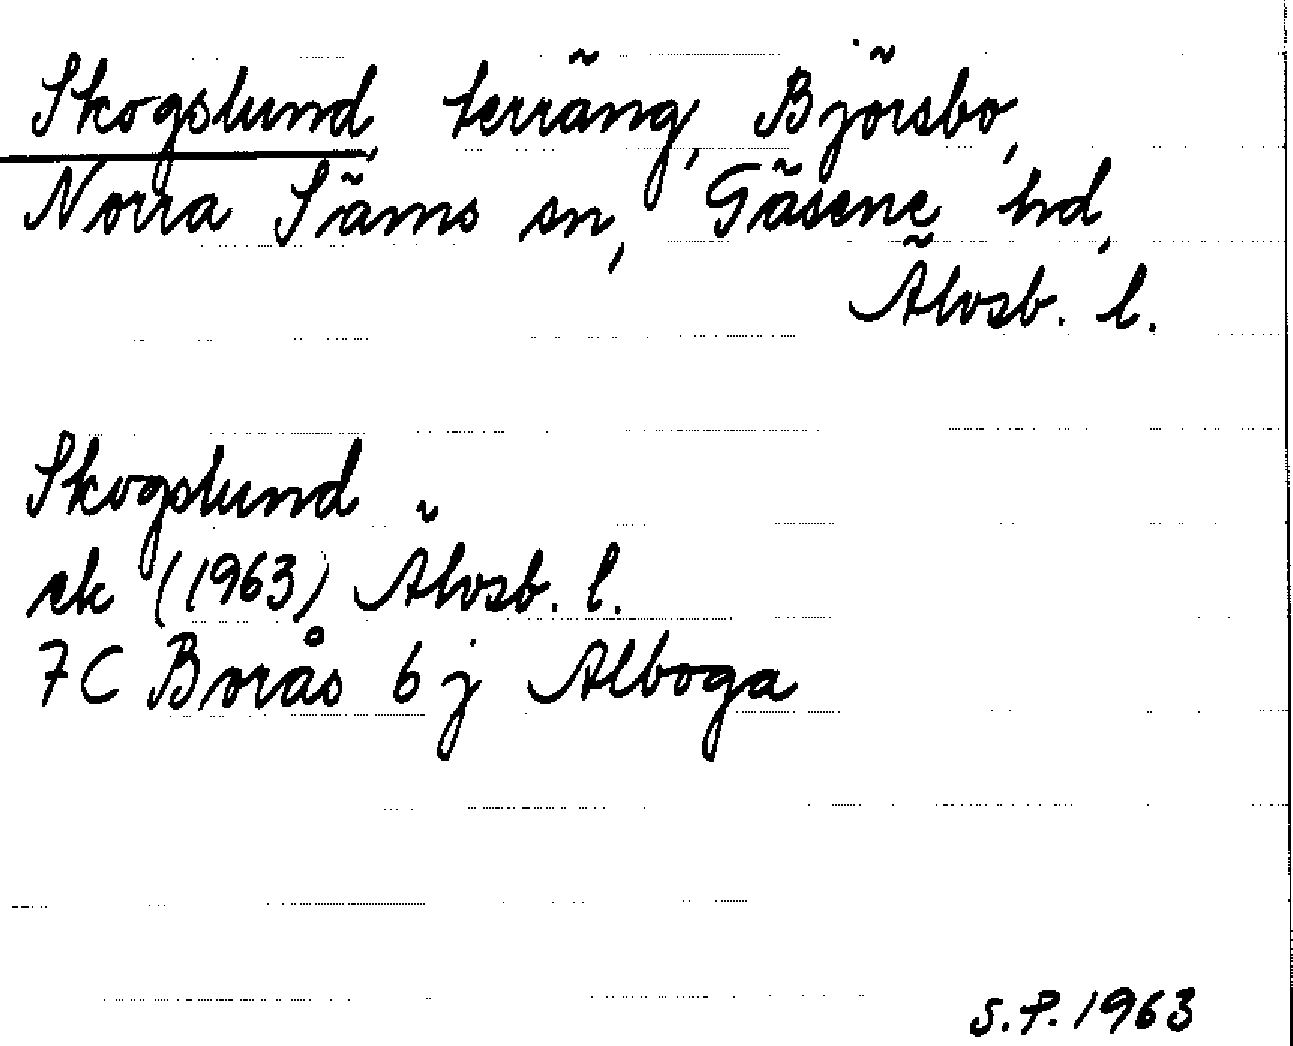 Skogslund, terräng, Björsbo,
Norra Säms sn, Gäsene hd,
Älvsb. l.
Skogslund
ek (1963) Älvsb. l.
7C Borås 6j Alboga
S.P. 1963